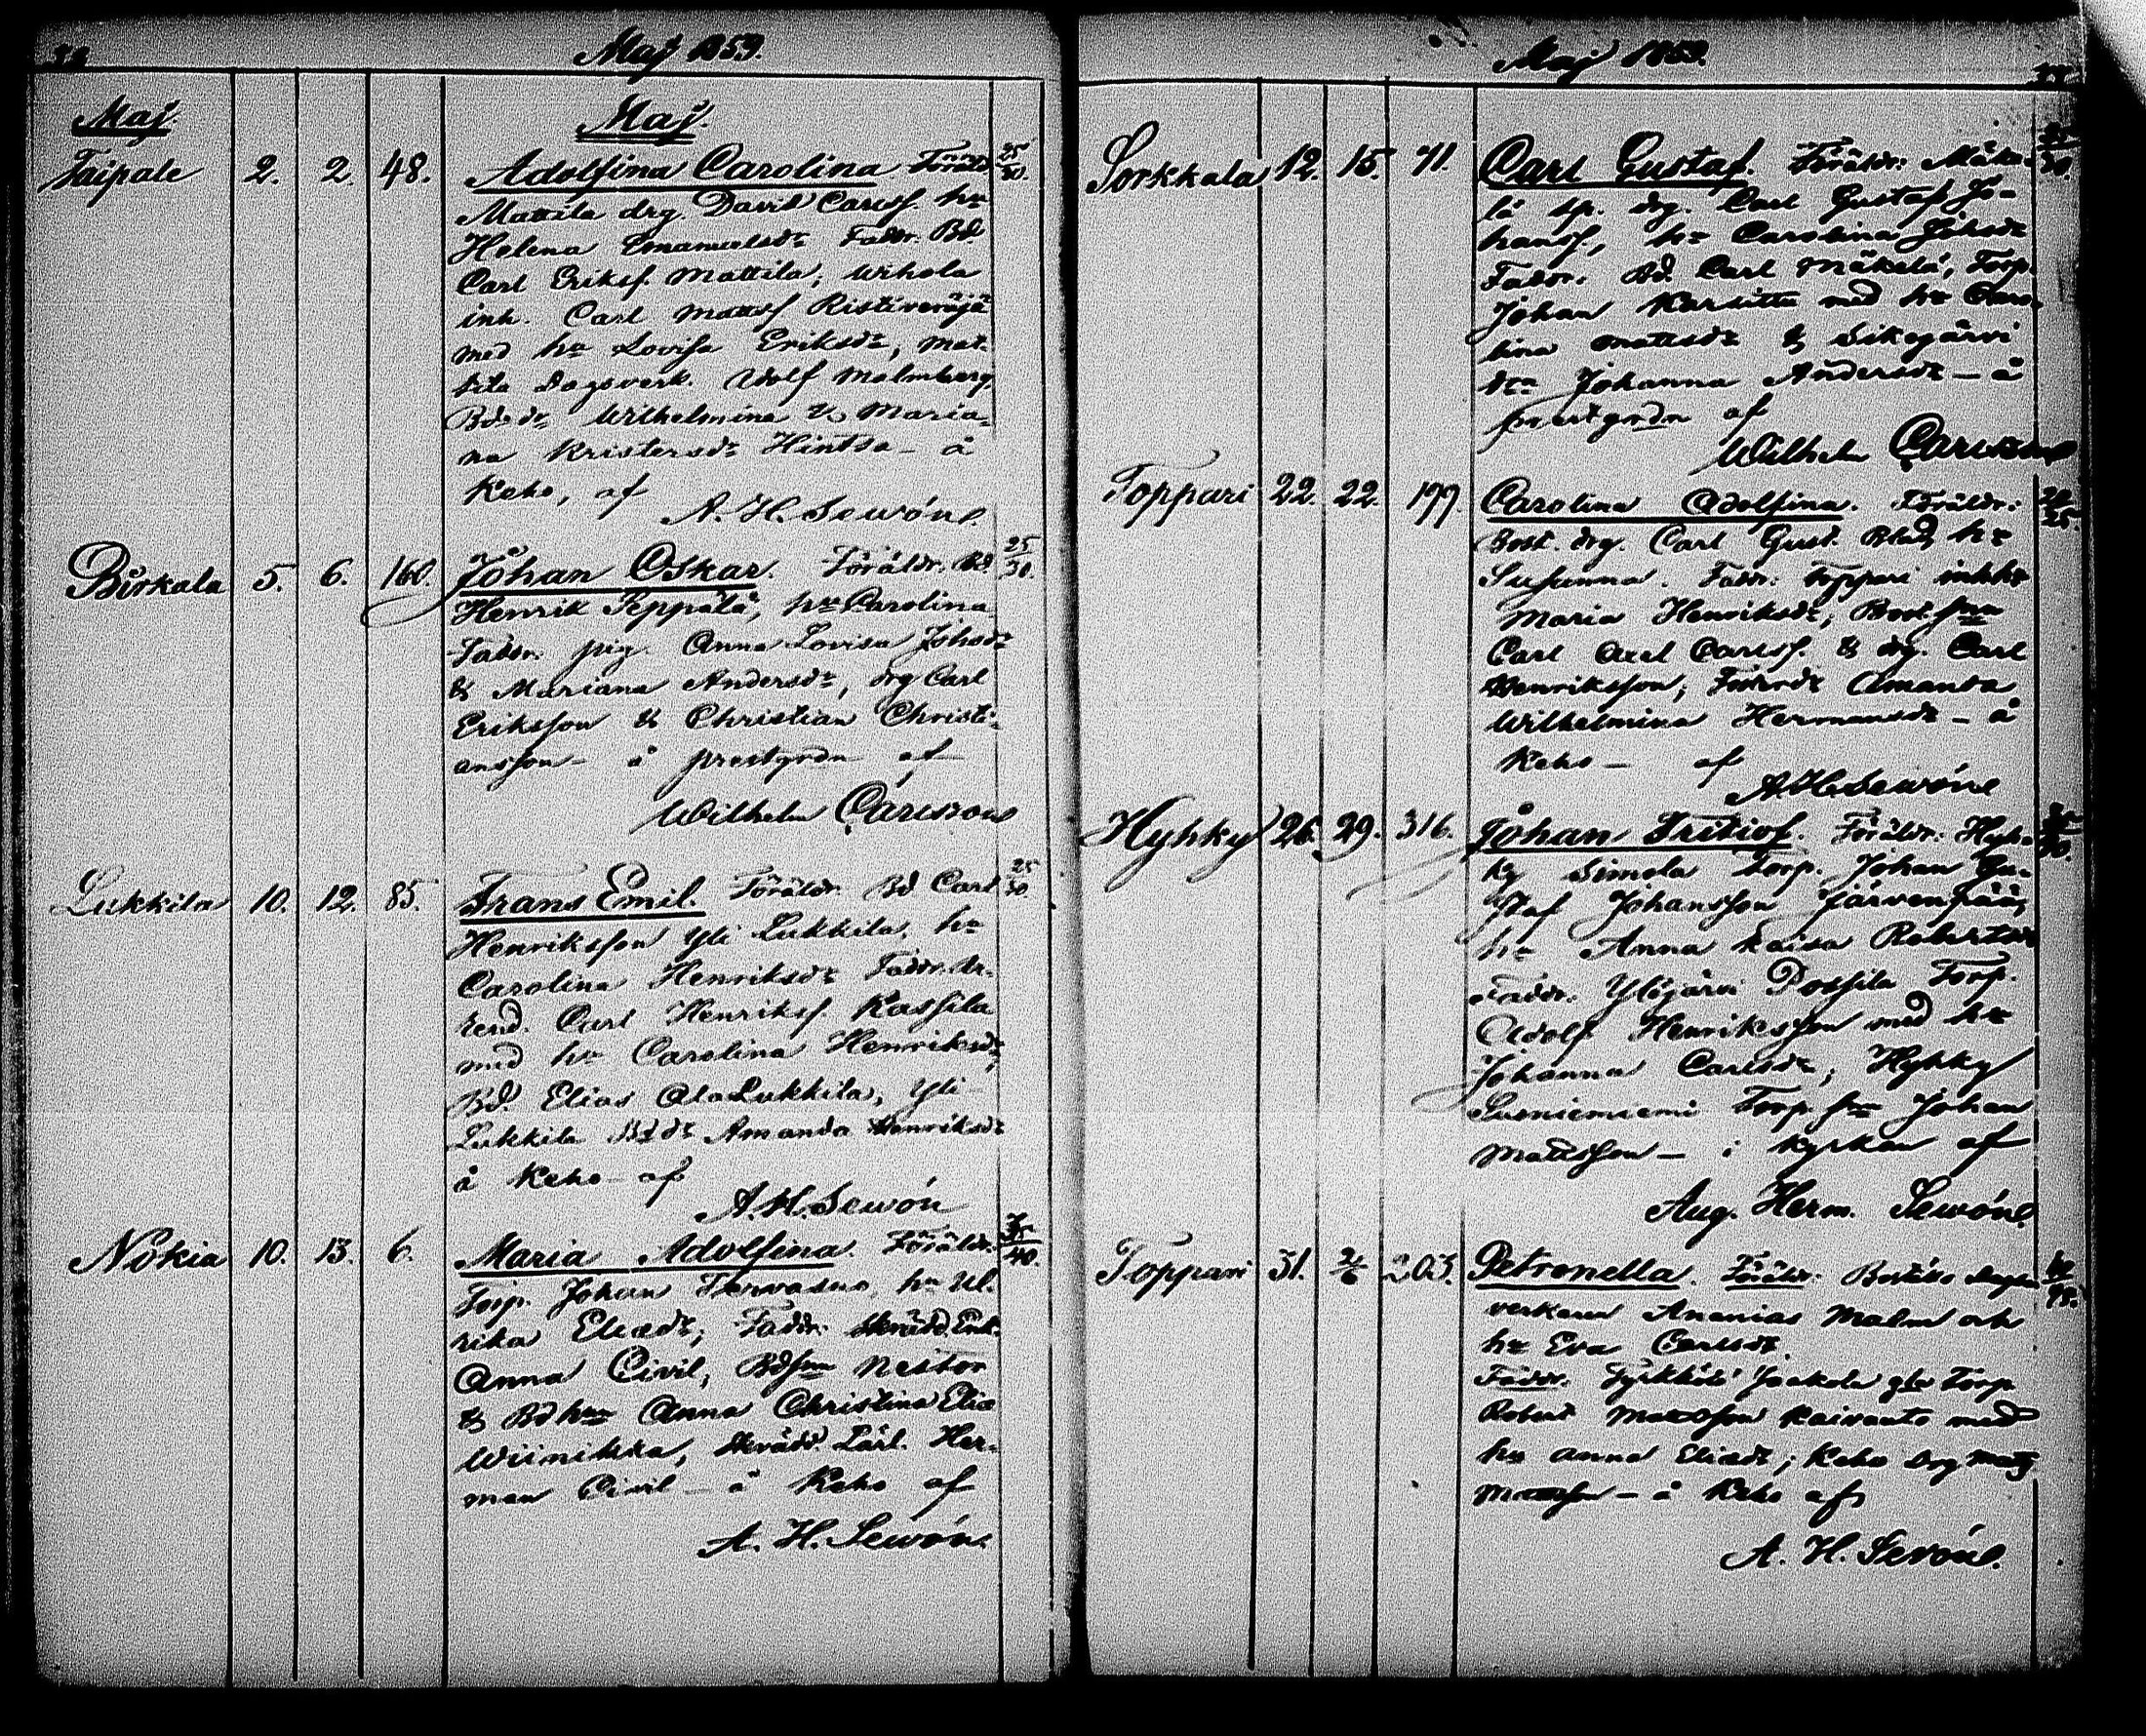 Maj 1859.
Maj.
Maj.
Taipale 2. 2. 48. Adolfina Carolina. Föräldr. 25/30.
Mattila drg. David Carlss. hu
Helena Emanuelsdr Faddr. Bd.
Carl Erikss. Mattila, Wihola
inh. Carl Mattss Ristiveräjä
med hu Lovisa Eriksdr, Mat-
tila Dagsverk. Adolf Malmberg
Bdedr Wilhelmina & Maria-
na Kristersdr Hintsa - å
Keho, af
A. H. Sewón.
Birkala 5. 6. 160. Johan Oskar. Föräldr. Bd 25/30.
Henrik Seppälä, hu Carolina
Faddr. pig. Anna Lovisa Johsdr
& Mariana Andersdr, drg Carl
Eriksson & Christian Christi-
ansson - å prestgrdn af
Wilhelm Carlsson
Lukkila 10. 12. 85. Frans Emil. Föräldr. Bd Carl 25/30.
Henriksson Yli Lukkila, hu
Carolina Henriksdr Faddr. Ar-
rend. Carl Henrikss. Kassila
med hu Carolina Henriksdr,
Bd. Elias AlaLukkila, Yli
Lukkila Bddr Amanda Henriksdr
å Keho af
A. H. Sewón
Nokia 10. 13. 6. Maria Adolfina. Föräldr. 35/40.
Torp. Johan Terwasuo, hu Ul-
rika Eliedr; Faddr. Skrädd. Enk.
Anna Civil, Bdson Nestor
& Bd hu Anna Christina Elia
Wiinikka, Skrädd. Lärl. Her-
man Civil - å Keho af
A. H. Sewón.
Maj 1859.
Sorkkala 12. 15. 71. Carl Gustaf. Föräldr: Mäke-
lä sp. drg. Carl Gustaf Jo-
hanss, hu Carolina Johsdr
Faddr. Bd. Carl Mäkelä, Torp.
Johan Karsitta med hu Caro-
lina Mattsdr & Sikojärvi
dtr Johanna Andersdr - å
prestgrdn af
Wilhelm Carlsson
Toppari 22. 22. 177. Carolina Adolfina. Föräldr:
Bost. drg. Carl Gust. Blad, hu
Susanna. Faddr: Toppari inhhu
Maria Henriksdr, Bost. son
Carl Axel Carlss. & drg. Carl
Henriksson, Amanda
Wilhelmina Hermansdr - å
Keho - af
A.H. Sewón
Hyhky 26. 29. 316. Johan Fritiof. Föräldr: Hyh-
ky Simola torp. Johan Gu-
staf Johansson Järvenpää,
hu Anna Kaisa Robertsdr
Faddr. Ylöjärvi Possila Torp.
Adolf Henriksson med hu
Johanna Carlsdr; Hyhky
Susniemiemi Torp. son Johan
Mattsson - i kyrkan af
Aug. Herm. Sewón.
Toppari 31. 2/6 203. Petronella. Föräldr: dags-
verkaren Ananias Malm och
hu Eva Carlsdr.
Faddr. Tyrkkölö Jaakola Torp
Robert Mattsson Kaivanto med
hu Anna Eliedr; Keho drg Matts
Mattsson - å Keho af
A. H. Sewón.